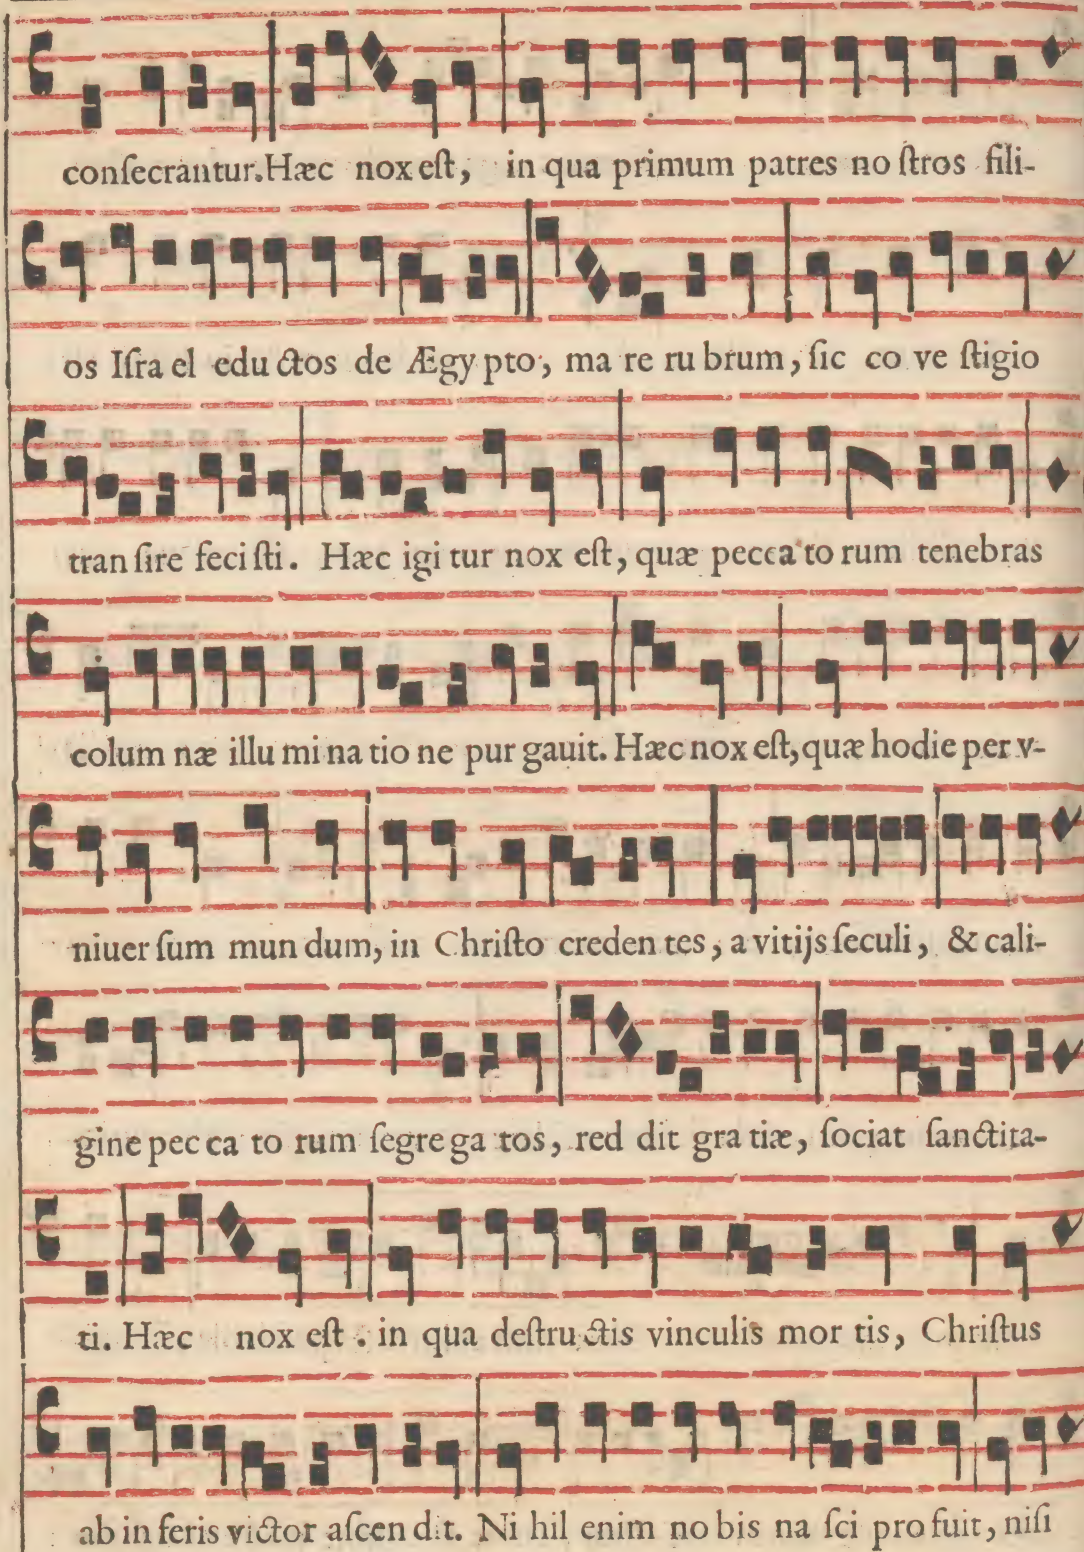 conſecrantur. Hæc nox eſt, in qua primum patres no ſtros fili-
os Iſra el edu ctos de Ægy pto, ma re ru brum, ſic co ve ſtigio
tran ſire feci ſti. Hæc igi tur nox eſt, quæ pecca to rum tenebras
colum næ illu mi na tio ne pur gauit. Hæc nox eſt, quæ hodie per v-
niuer ſum mun dum, in Chriſto creden tes, a vitijs ſeculi, & cali-
gine pec ca to rum ſegre ga tos, red dit gra tiæ, ſociat ſanctita-
ti. Hæc nox eſt. in qua deſtru ctis vinculis mor tis, Chriſtus
ab in feris victor aſcen dit. Ni hil enim no bis na ſci pro fuit, niſi